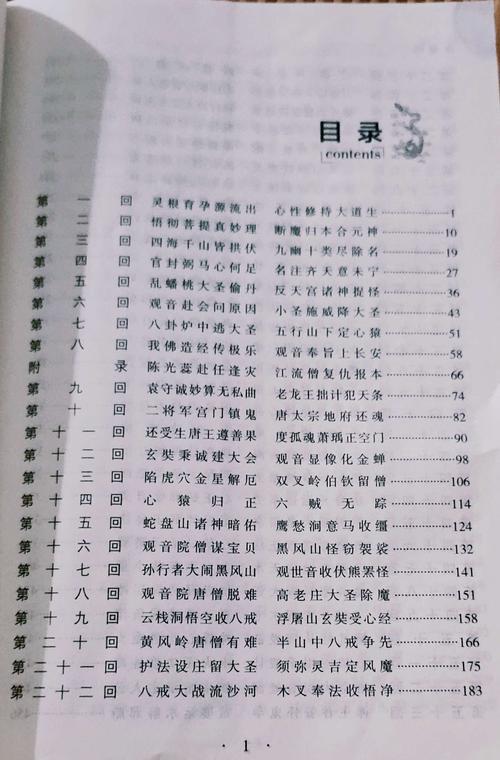 目录
contents
第一回 灵根育孕源流出 心性修持大道生 1
第二回 悟彻菩提真妙理 断魔归本合元神 10
第三回 四海千山皆拱伏 九幽十类尽除名 19
第四回 官封弼马心何足 名注齐天意未宁 27
第五回 乱蟠桃大圣偷丹 反天宫诸神捉怪 36
第六回 观音赴会问原因 小圣施威降大圣 43
第七回 八卦炉中逃大圣 五行山下定心猿 51
第八回 我佛造经传极乐 观音奉旨上长安 58
附录 陈光蕊赴任逢灾 江流僧复仇报本 66
第九回 袁守诚妙算无私曲 老龙王拙计犯天条 74
第十回 二将军宫门镇鬼 唐太宗地府还魂 82
第十一回 还受生唐王遵善果 度孤魂萧瑀正空门 90
第十二回 玄奘秉诚建大会 观音显像化金蝉 98
第十三回 陷虎穴金星解厄 双叉岭伯钦留僧 106
第十四回 心猿归正 六贼无踪 114
第十五回 蛇盘山诸神暗佑 鹰愁涧意马收缰 124
第十六回 观音院僧谋宝贝 黑风山怪窃袈裟 132
第十七回 孙行者大闹黑风山 观世音收伏熊罴怪 141
第十八回 观音院唐僧脱难 高老庄大圣除魔 151
第十九回 云栈洞悟空收八戒 浮屠山玄奘受心经 158
第二十回 黄风岭唐僧有难 半山中八戒争先 166
第二十一回 护法设庄留大圣 须弥灵吉定风魔 175
第二十二回 八戒大战流沙河 木叉奉法收悟净 183
· 1 ·